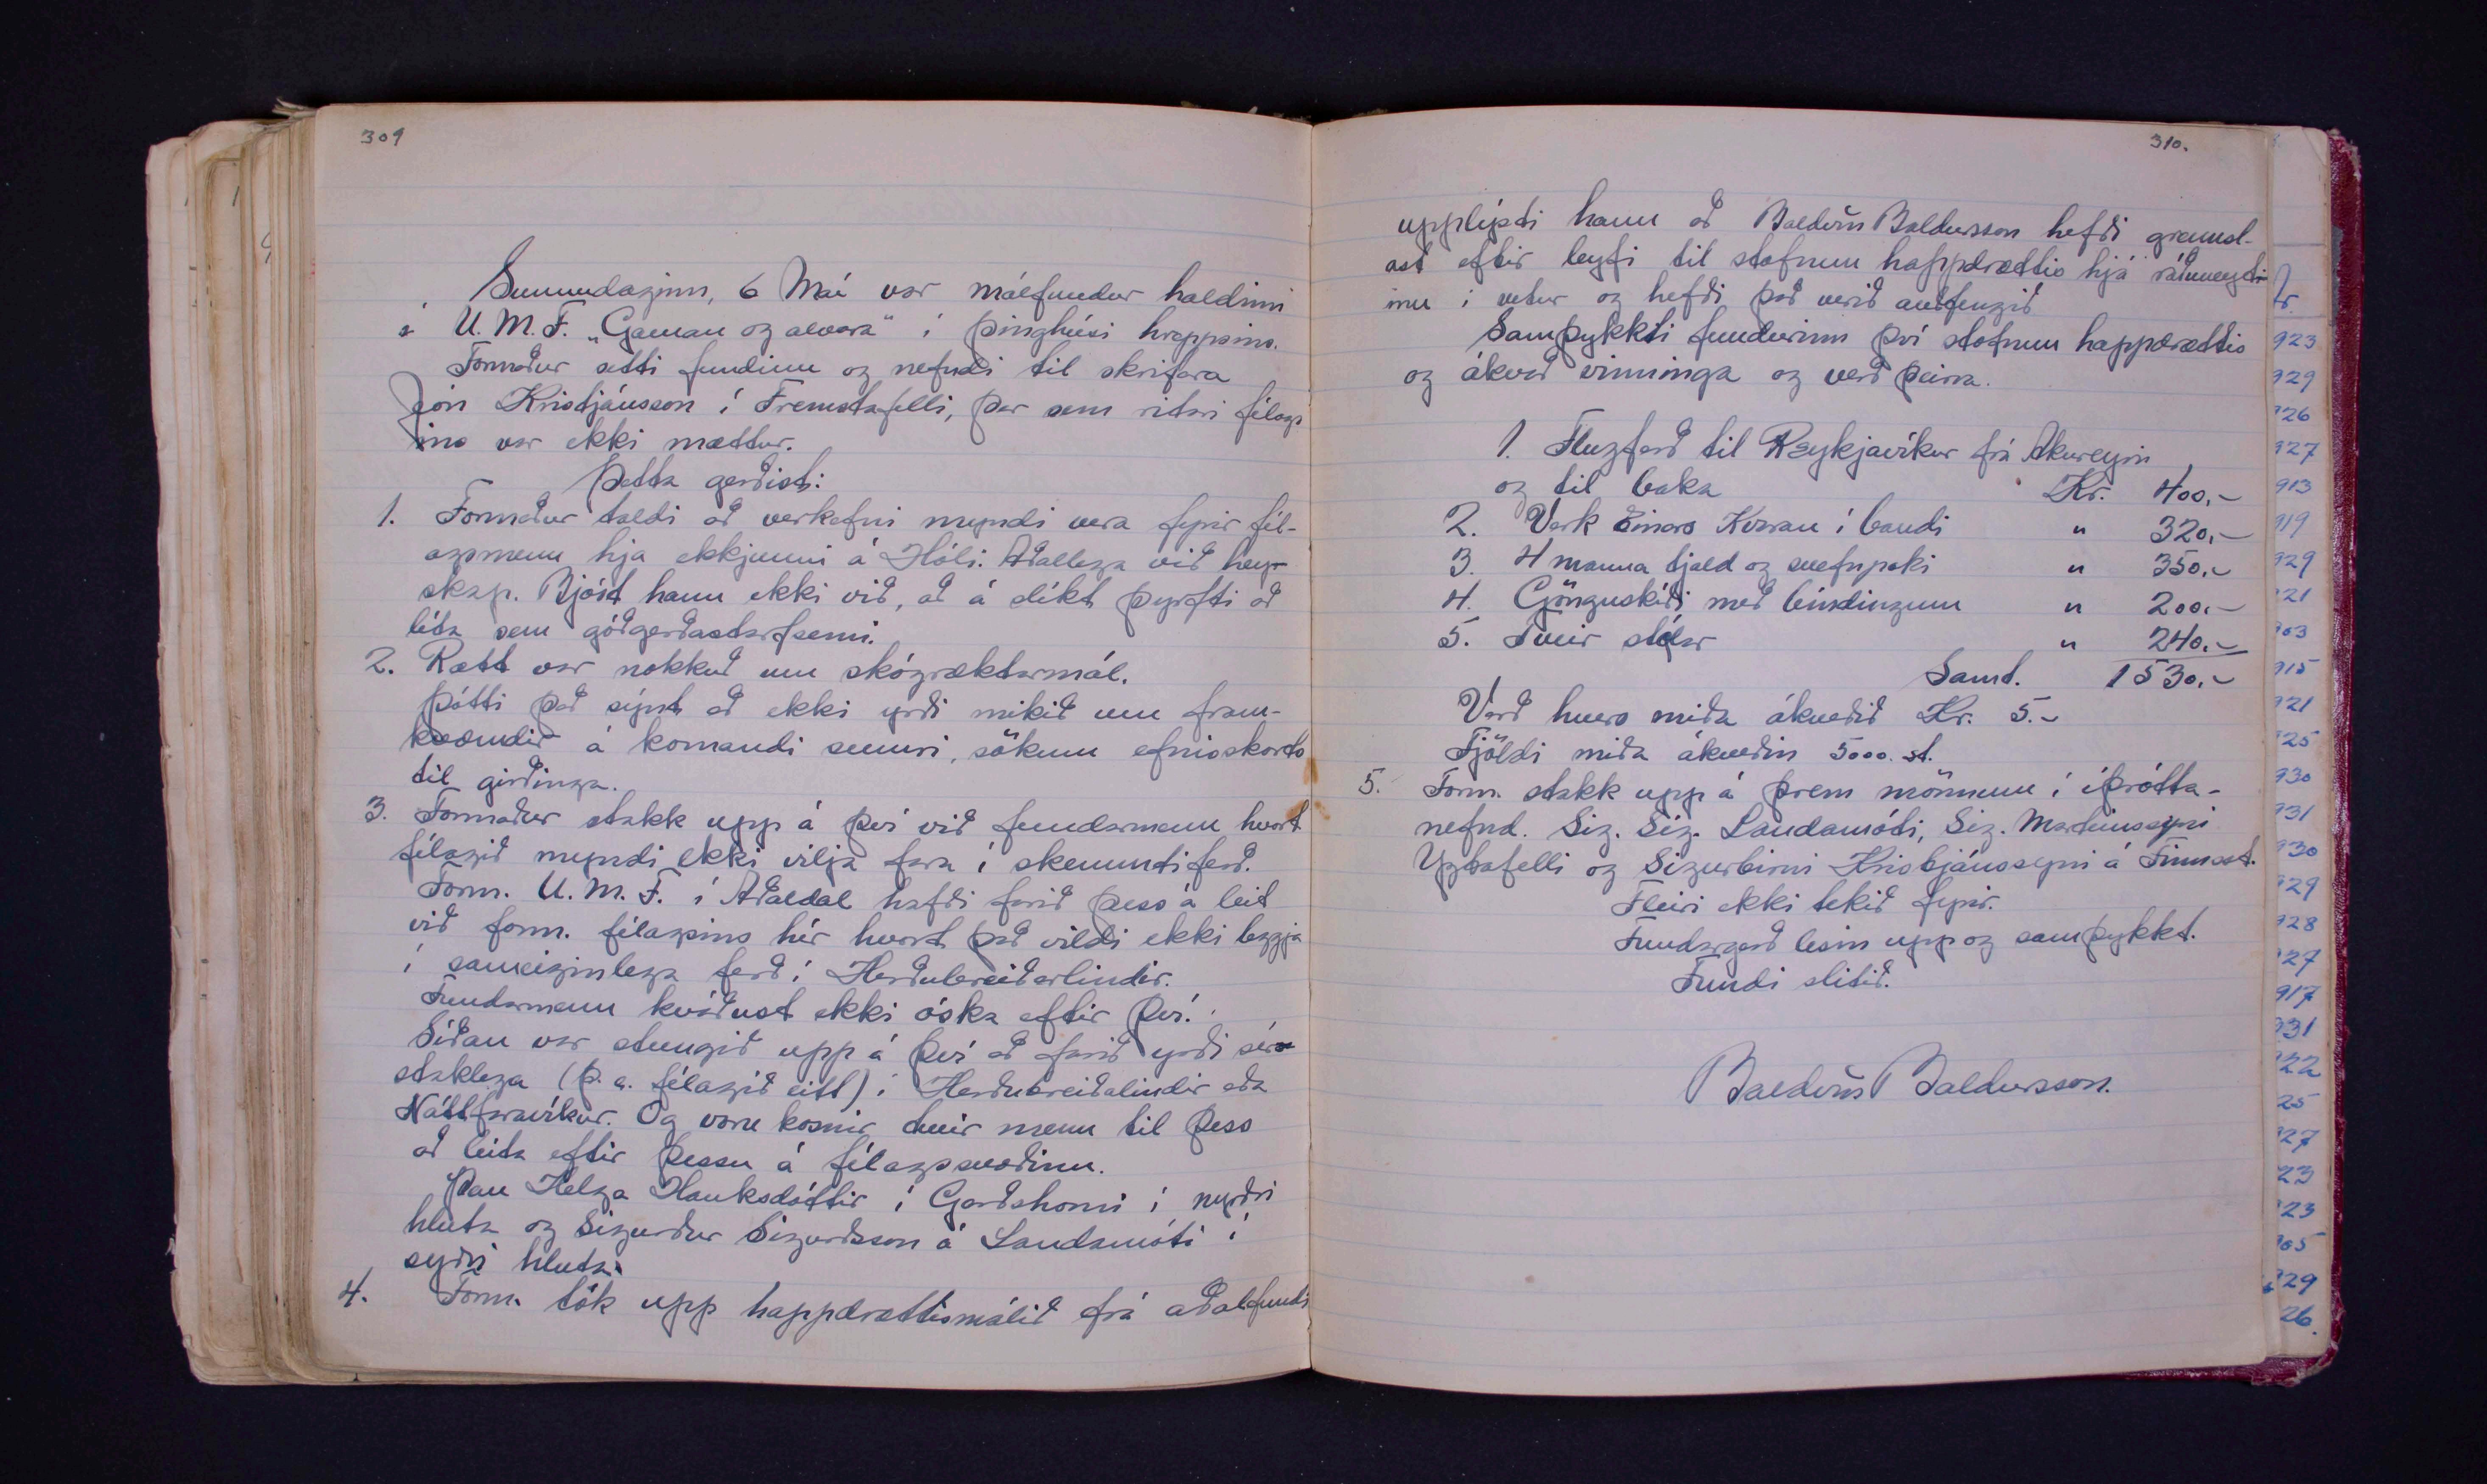 309
Sunnudaginn, 6 Maí var málfundur haldinn
í U.M.F. „Gaman og alvara" í þinghúsi hreppsins.
Formaður setti fundinn og nefndi til skrifara
Jón Kristjánsson í Fremstafelli, þar sem ritari félags
ins var ekki mættur.
Þetta gerðist:
1. Formaður taldi að verkefni myndi vera fyrir fél-
agsmenn hja ekkjunni á Hóli. Aðallega við hey-
skap. Bjóst hann ekki við, að á slíkt þyrfti að
líta sem góðgerðastarfsemi.
2. Rætt var nokkuð um skógræktarmál.
Þótti það sýnt að ekki yrði mikið um fram-
kvæmdir á komandi sumri, sökum efnisskorts
til girðinga.
3. Formaður stakk upp á því við fundarmenn hvort
félagið myndi ekki vilja fara í skemmtiferð.
Form. U.M.F. í Aðaldal hafði farið þess á leit
við form. félagsins hér hvort það vildi ekki leggja
í sameiginlega ferð í Herðubreiðarlindir.
Fundarmenn kváðust ekki óska eftir því.
Síðan var stungið upp á því að farið yrði sér-
staklega (þ.e. félagið eitt) í Herðubreiðalindir eða
Náttfaravíkur. Og voru kosnir tveir menn til þess
að leita eftir þessu á félagssvæðinu.
Þau Helga Hauksdóttir í Garðshorni í nyrðri
hluta og Sigurður Sigurðsson á Landamóti í
syðri hluta.
4. Form. tók upp happdrættismálið frá aðalfundi
310.
upplýsti hann að Baldvin Baldursson hefði grennsl-
ast eftir leyfi til stofnun happdrættis hjá ráðuneyti
inu í vetur og hefði það verið auðfengið
Samþykkti fundurinn því stofnun happdrættis
og ákvað vinninga og verð þeirra.
1. Flugferð til Reykjavíkur frá Akureyri
og til baka Kr. 400,-
2. Verk Einars Kvaran í bandi " 320,-
3. 4 manna tjald og svefnpoki " 350,-
4. Gönguskíði með bindingum " 200,-
5. Tveir stólar " 240,-
Samt. 1530,-
Verð hvers miða ákveðið Kr. 5.-
Fjöldi miða ákveðin 5000. st.
5. Form. stakk upp á þrem mönnum í íþrótta-
nefnd. Sig. Sig. Landamóti, Sig. Marteinssyni
Yztafelli og Sigurbirni Kristjánssyni á Finnsst.
Fleiri ekki tekið fyrir.
Fundargerð lesin upp og samþykkt.
Fundi slitið.
Baldvin Baldursson.
r.
923
929
926
927
913
919
929
21
903
915
921
25
930
931
930
929
928
27
917
931
22
25
27
23
23
905
929
26.